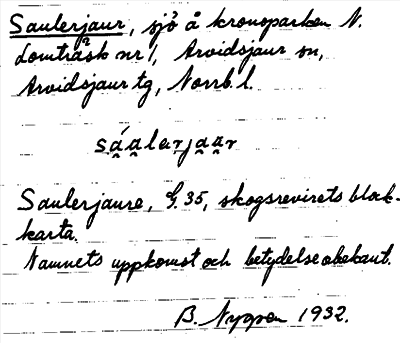 Saulerjaur, sjö å kronoparken N.
Lomträsk nr 1, Arvidsjaur sn,
Arvidsjaur tg, Norrb. l.
sáa̯lerjaa̯r
Saulerjaure, G. 35, skogsrevirets block-
karta.
Namnets uppkomst och betydelse obekant.
B. Nygren 1932.